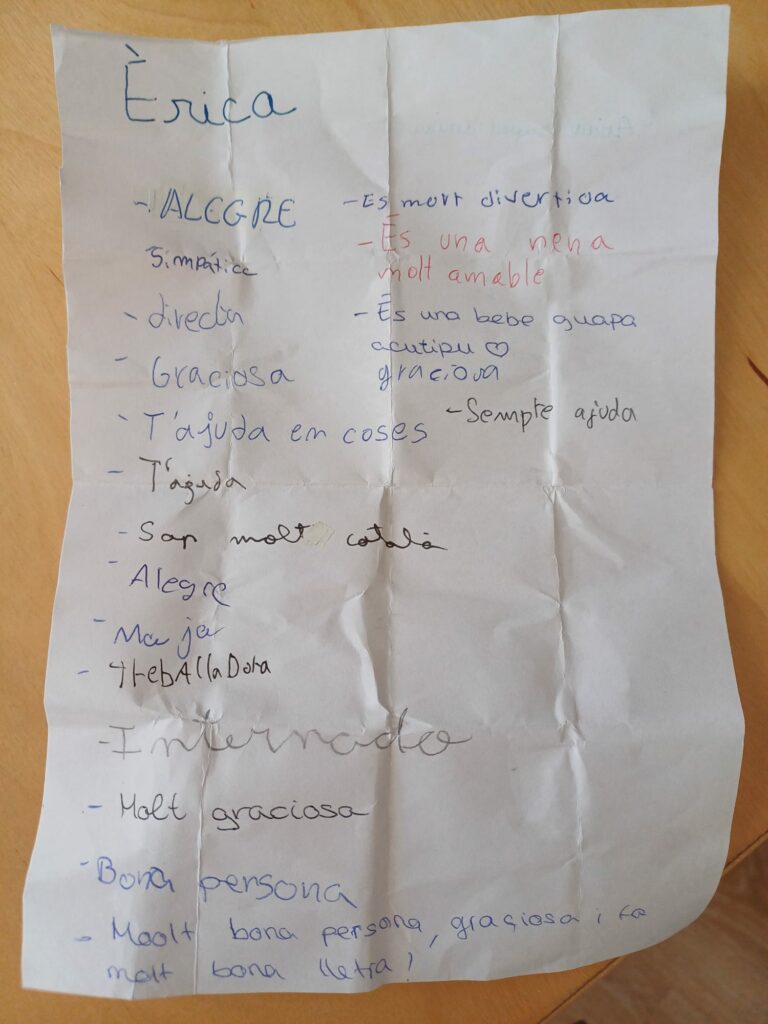 Èrica
- ALEGRE
Simpàtica
- directa
- Graciosa
- T'ajuda en coses
- T'ajuda
- Sap molt català
- Alegre
- Maja
- treballadora
- Internado
- Molt graciosa
- Bona persona
- Moolt bona persona, graciosa i fa
molt bona lletra!
- Es molt divertida
- És una nena
molt amable
- És una bebe guapa
acutipu ♡
graciova
- Sempre ajuda